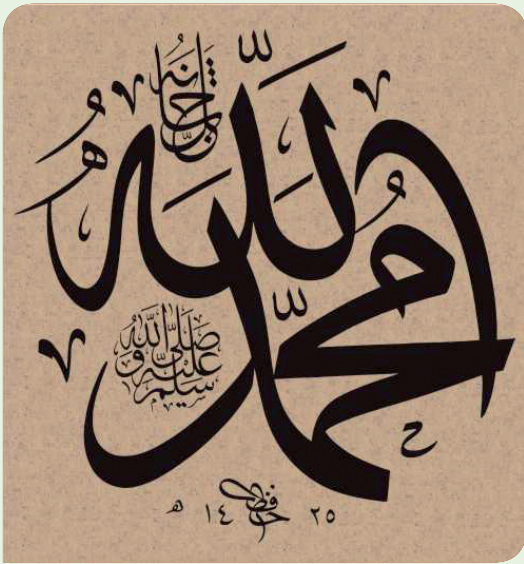 الله
محمد
صلى الله عليه وسلم
١٤٢٥ ه